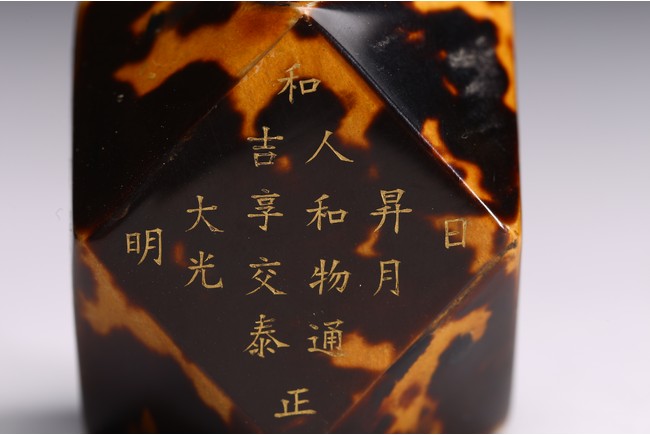 和
日
昇月
人和物通
吉享交泰
大光
明
正